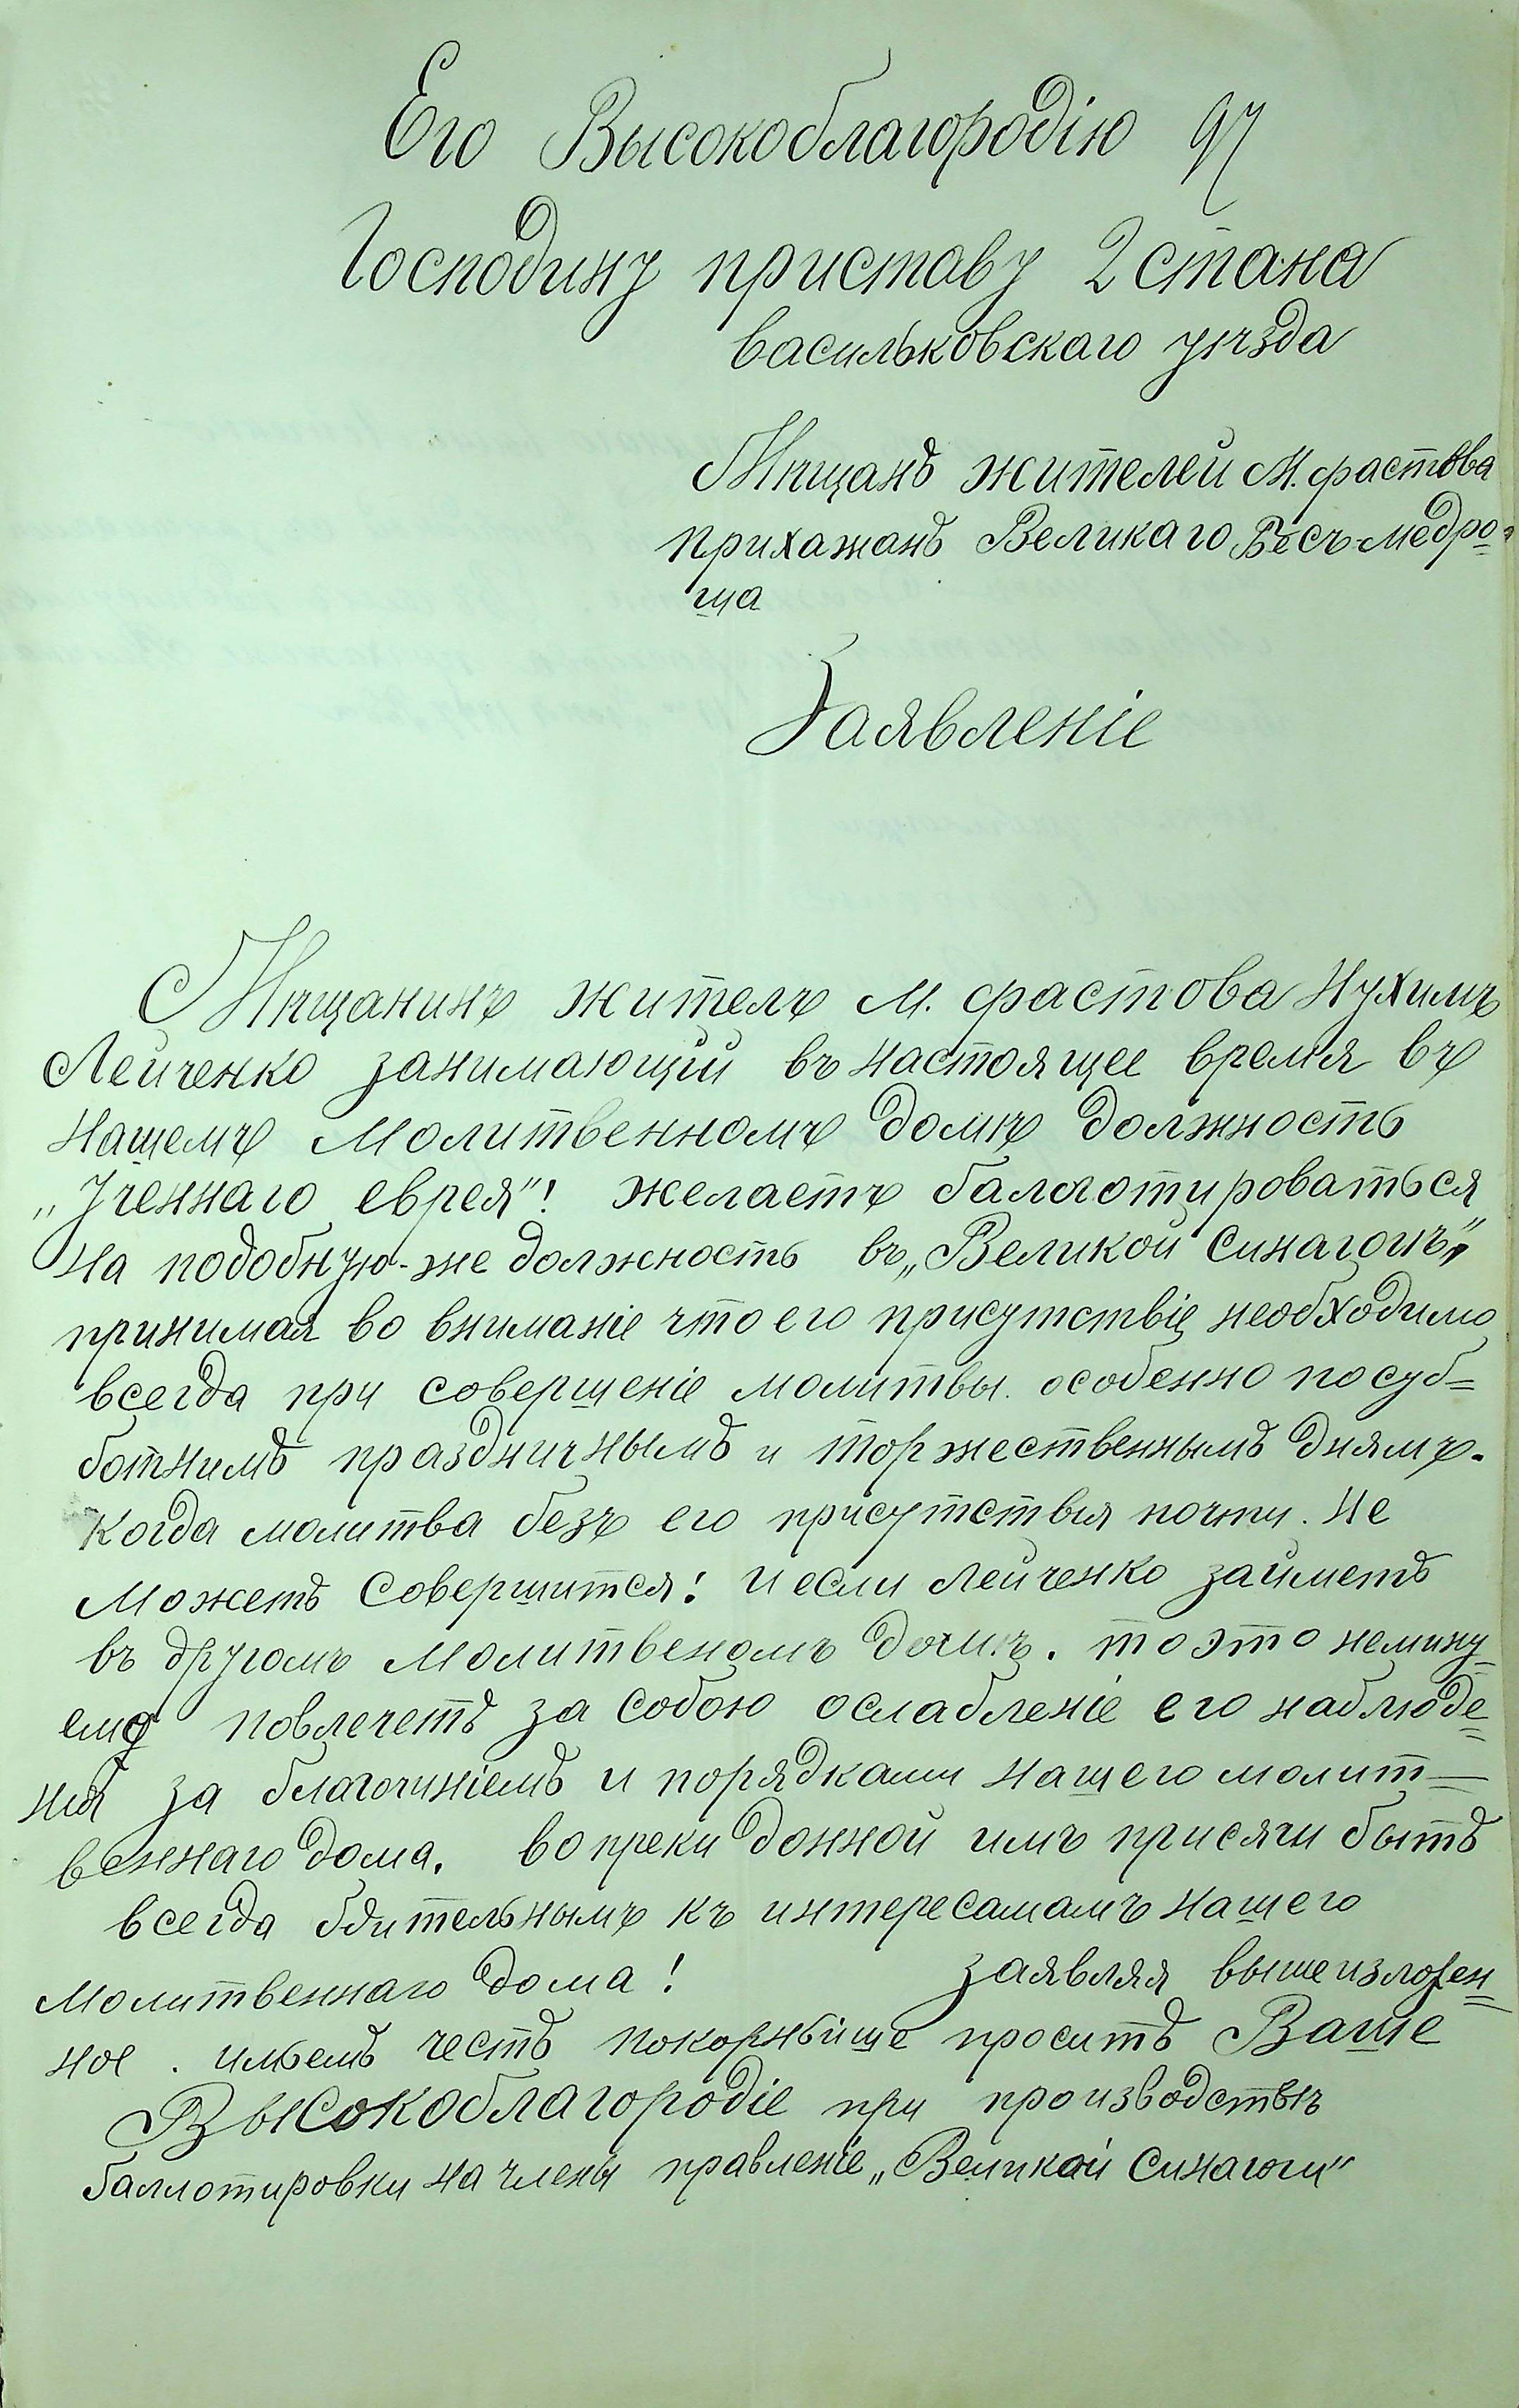 Его Высокоблагородію 97
Господину приставу 2 стана
Васильковскаго уѣзда
Мѣщанъ жителей М. Фастова
прихажанъ Великаго Бесъ-медро-
ша
Заявленіе
Мѣщанинъ жителъ М. Фастова Нухимъ
Лейченко занимающій въ настоящее время въ
нашемъ Молитвенномъ домѣ должность
„Ученнаго еврея"! желаетъ балотироваться
на подобную-же должность въ „Великой Синагогѣ"
принимая во вниманіе что его присутствіе необходимо
всегда при совершеніе молитвы. особенно по суб=
ботнимъ праздничнымъ и торжественнымъ днямъ.
когда молитва безъ его присутствия почти. не
можетъ совершится! и если Лейченко займетъ
въ другомъ молитвеномъ домѣ. то это немину-
емо повлечетъ за собою ослабленіе его наблюде=
ния за благочиніемъ и порядками нашего молит=
веннаго дома. вопреки донной имъ присяги бытъ
всегда бдительнымъ къ интересамамъ нашего
Молитвеннаго дома! заявляя вышеизложен=
ное. имѣемъ честъ покорнѣйше проситъ Ваше
Высокоблагородіе при производствѣ
баллотировки на члены правленіе „Великой Синагоги"